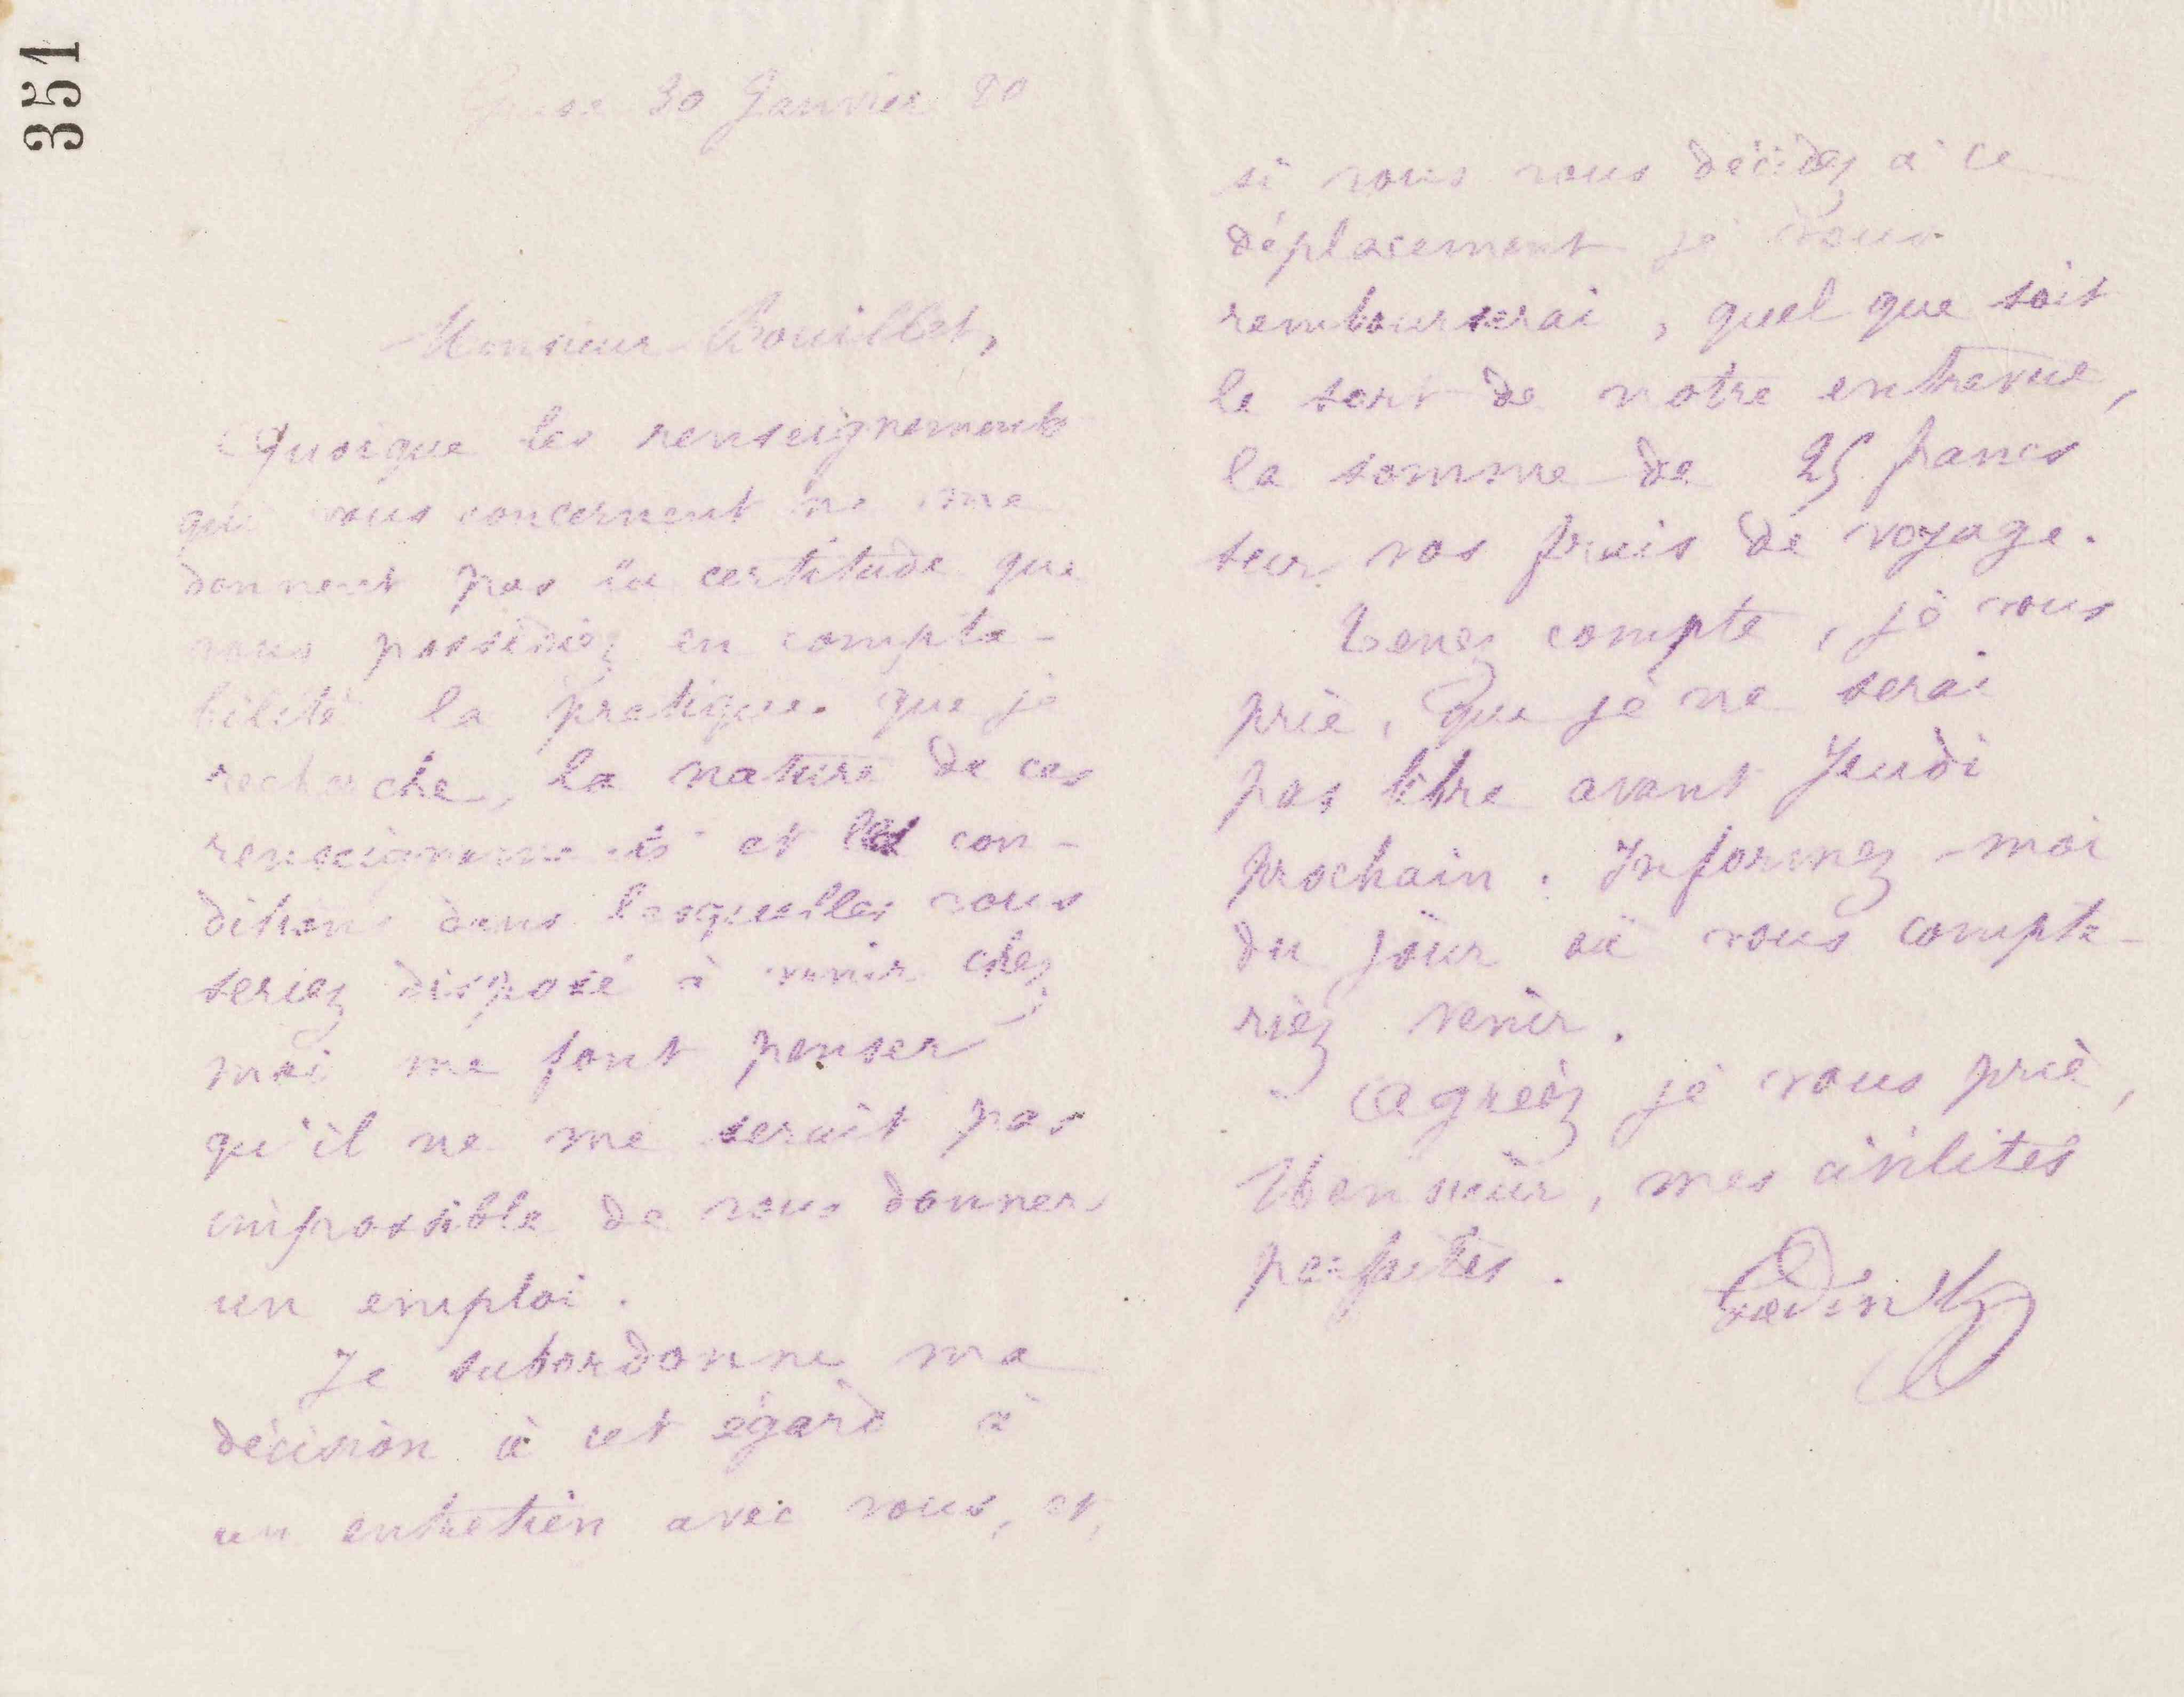 351
Guise 30 Janvier 80
Monsieur Bouillet,
Quoique les renseignements
qui vous concernent ne me
donnent pas la certitude que
vous possédiez en compta-
bilité la pratique que je
recherche, la nature de ces
renseignements et les con-
ditions dans lesquelles vous
seriez disposé à venir chez
moi me font penser
qu'il ne me serait pas
impossible de vous donner
un emploi.
Je subordonne ma
décision à cet égard à
un entretien avec vous, et,
si vous vous décidez à ce
déplacement je vous
rembourserai, quel que soit
le sort de notre entrevue,
la somme de 25 francs
sur vos frais de voyage.
Tenez compte, je vous
prie, que je ne serai
pas libre avant Jeudi
prochain. Informez-moi
du jour où vous compte-
riez venir.
Agréez je vous prie,
Monsieur, mes civilités
parfaites.
Godin